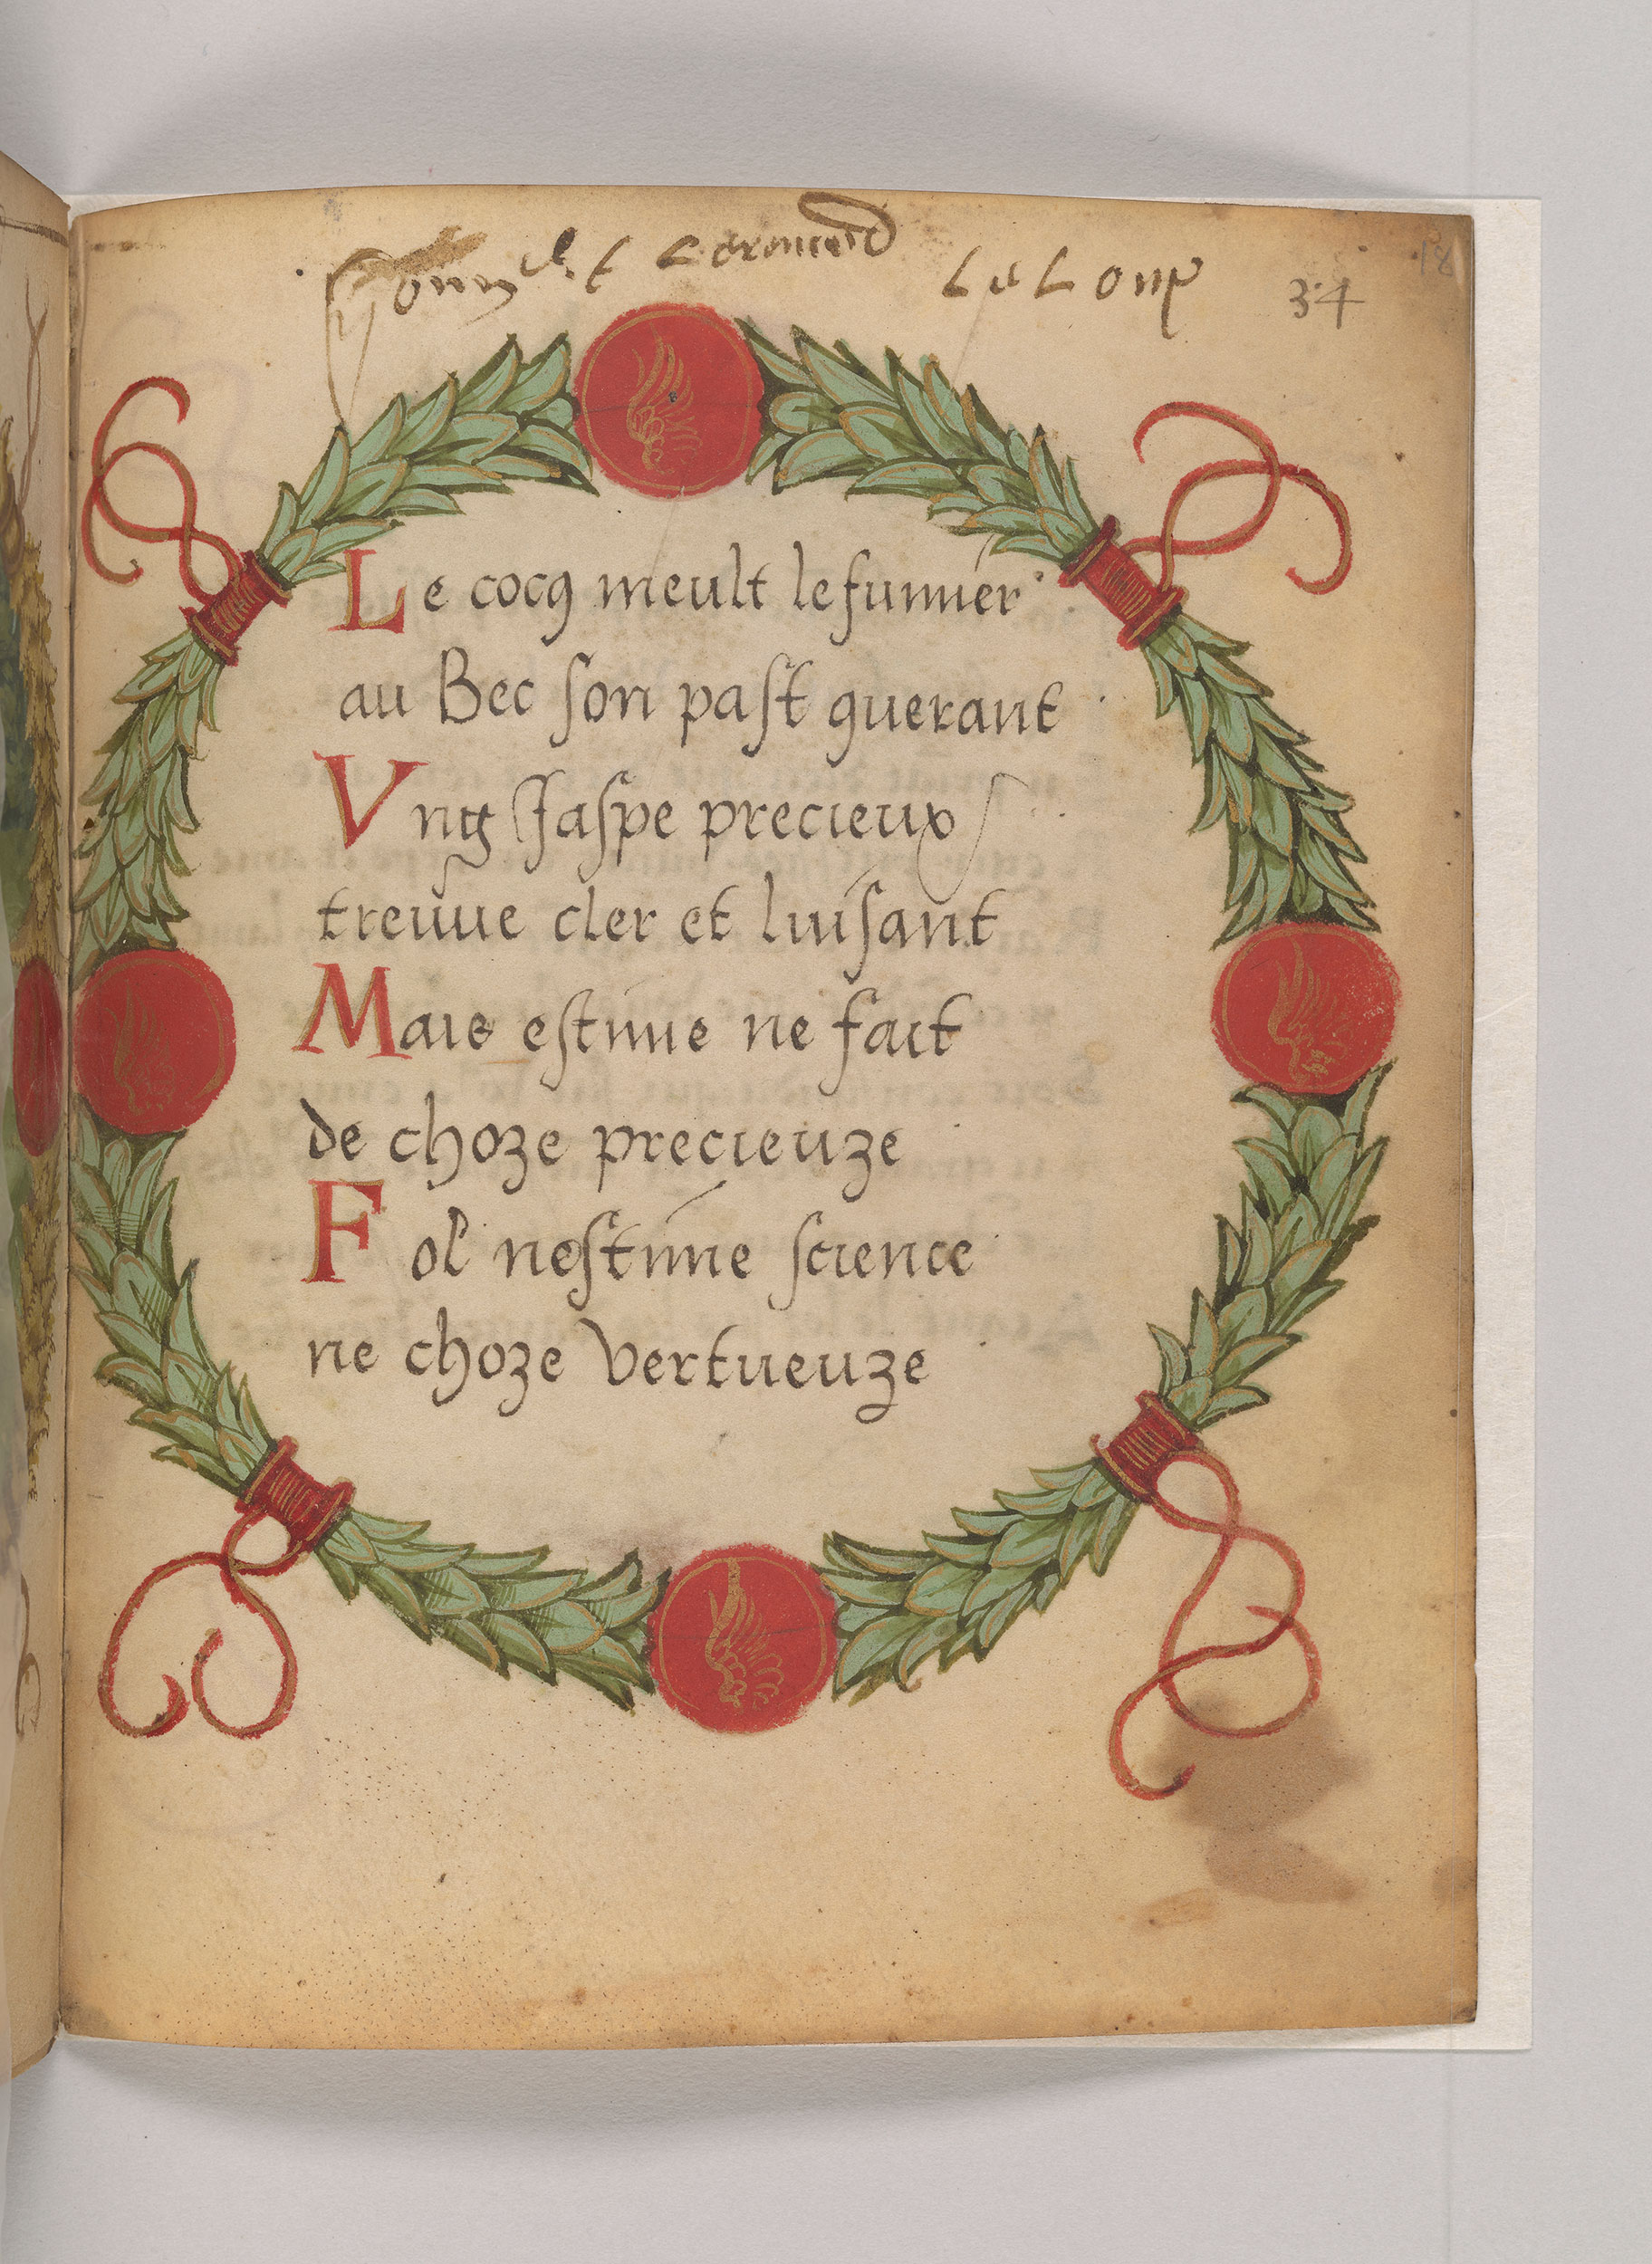 Le Loup
34
18
Le cocq meult le fumier
au Bec son past querant
Vng Jaspe precieux
treuue cler et luisant
Mais estime ne fait
de choze precieuze
Fol nestime science
ne choze vertueuze